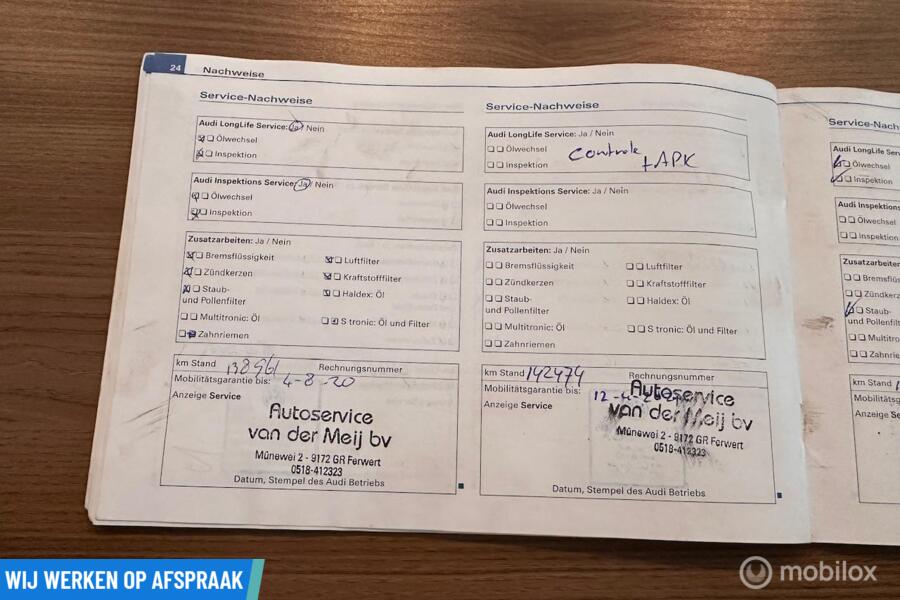 24 Nachweise
Service-Nachweise
Audi LongLife Service: Ja / Nein
Ölwechsel
Inspektion
Audi Inspektions Service: Ja / Nein
Ölwechsel
Inspektion
Zusatzarbeiten: Ja / Nein
Bremsflüssigkeit Luftfilter
Zündkerzen Kraftstofffilter
Staub- Haldex: Öl
und Pollenfilter
Multitronic: Öl S tronic: Öl und Filter
Zahnriemen
km Stand 138961 Rechnungsnummer
Mobilitätsgarantie bis: 4-8-20
Anzeige Service
Autoservice
van der Meij bv
Mûnewei 2 - 9172 GR Ferwert
0518-412323
Datum, Stempel des Audi Betriebs
Service-Nachweise
Audi LongLife Service: Ja / Nein
Ölwechsel
Inspektion
Controle + APK
Audi Inspektions Service: Ja / Nein
Ölwechsel
Inspektion
Zusatzarbeiten: Ja / Nein
Bremsflüssigkeit Luftfilter
Zündkerzen Kraftstofffilter
Staub- Haldex: Öl
und Pollenfilter
Multitronic: Öl S tronic: Öl und Filter
Zahnriemen
km Stand 142474 Rechnungsnummer
Mobilitätsgarantie bis:
Anzeige Service
Autoservice
van der Meij bv
Mûnewei 2 - 9172 GR Ferwert
0518-412323
Datum, Stempel des Audi Betriebs
Service-Nach
Audi LongLife S
Ölwechsel
Inspektion
Audi Inspektions
Ölwechsel
Inspektion
Zusatzarbeiten:
Bremsflüs
Zündkerz
Staub-
und Pollenfilt
Multitron
Zahnriem
km Stand
Mobilitätsg
Anzeige Se
WIJ WERKEN OP AFSPRAAK
mobilox